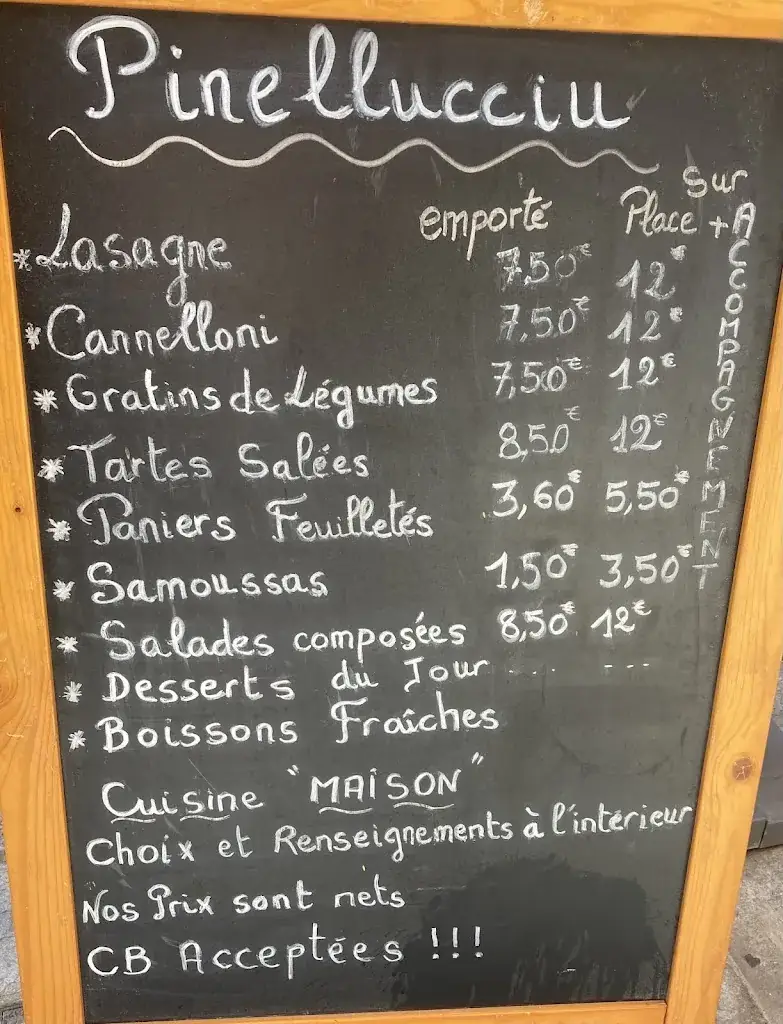 Pinellucciu
emporté Sur Place + ACCOMPAGNEMENT
* Lasagne 7,50€ 12€
* Cannelloni 7,50€ 12€
* Gratins de Légumes 7,50€ 12€
* Tartes Salées 8,50€ 12€
* Paniers Feuilletés 3,60€ 5,50€
* Samoussas 1,50€ 3,50€
* Salades composées 8,50€ 12€
* Desserts du Jour .... ---
* Boissons Fraîches
Cuisine "MAISON"
Choix et Renseignements à l'intérieur
Nos Prix sont nets
CB Acceptées !!!